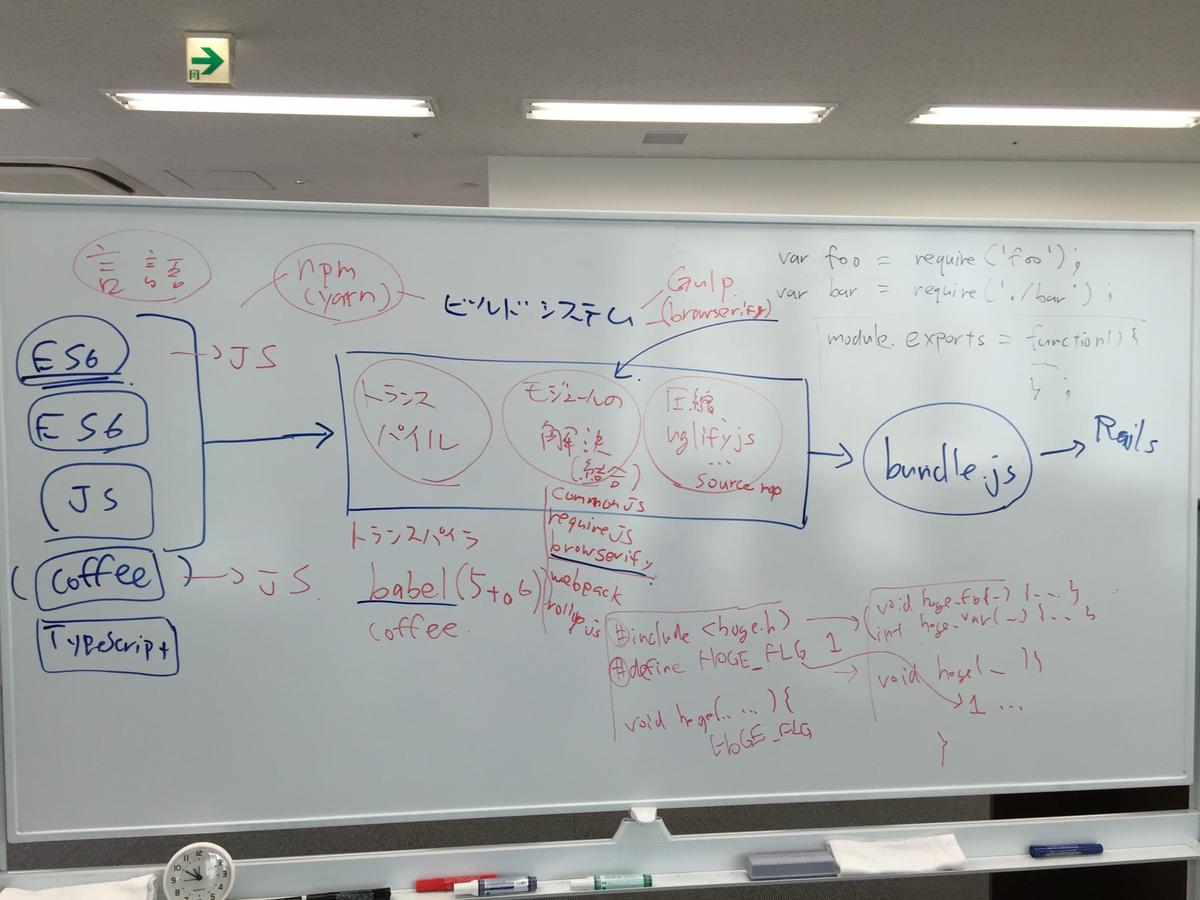 言語
npm
(yarn)
ビルドシステム
Gulp.
(browserify)
var foo = require('foo');
var bar = require('./bar');
module.exports = function() {
};
ES6
→ JS
ES6
JS
(coffee) → JS.
TypeScript
トランス
パイル
モジュールの
解決
(結合)
圧縮
uglifyjs
...
source map
bundle.js
→ Rails
トランスパイラ
babel (5 to 6)
coffee.
commonjs
requirejs
browserify
webpack
rollup.js
#include <hoge.h>
#define HOGE_FLG 1
void hoge(.. ...) {
HOGE_FLG
int hoge_var(_) {...}
void hoge(_ ){
1 ...
}